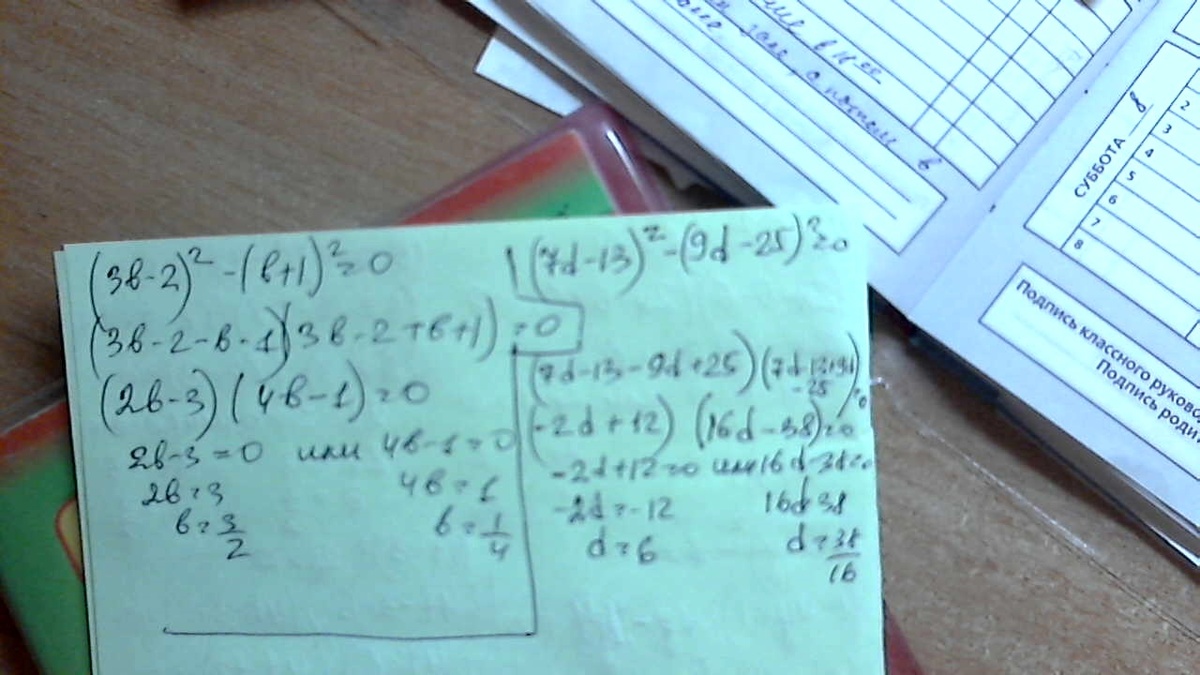 (3в-2)² -(в+1)²=0
(3в-2-в-1)(3в-2+в+1)=0
(2в-3)(4в-1)=0
2в-3=0 или 4в-1=0
2в=3 4в=1
в=3/2 в=1/4
(7d-13)²-(9d-25)²=0
(7d-13-9d+25)(7d-13+9d
-25)=0
(-2d+12)(16d-38)=0
-2d+12=0 или 16d-38=0
-2d=-12 16d=38
d=6 d=38/16
в 18 00
зале, а потом в
СУББОТА 8
2
3
4
5
6
7
8
Подпись классного руково
Подпись роди